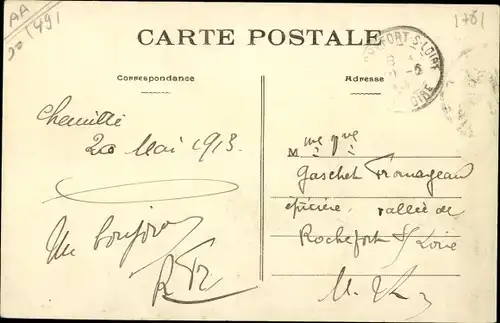 AA
1491
1781
CARTE POSTALE
ROCHEFORT-S-LOIRE
Correspondance
Adresse
Chemillé
20 Mai 1913
Un bonjour
M me Vve
Gaschet Fromageau
épicière vallée de
Rochefort S/ Loire
M. &